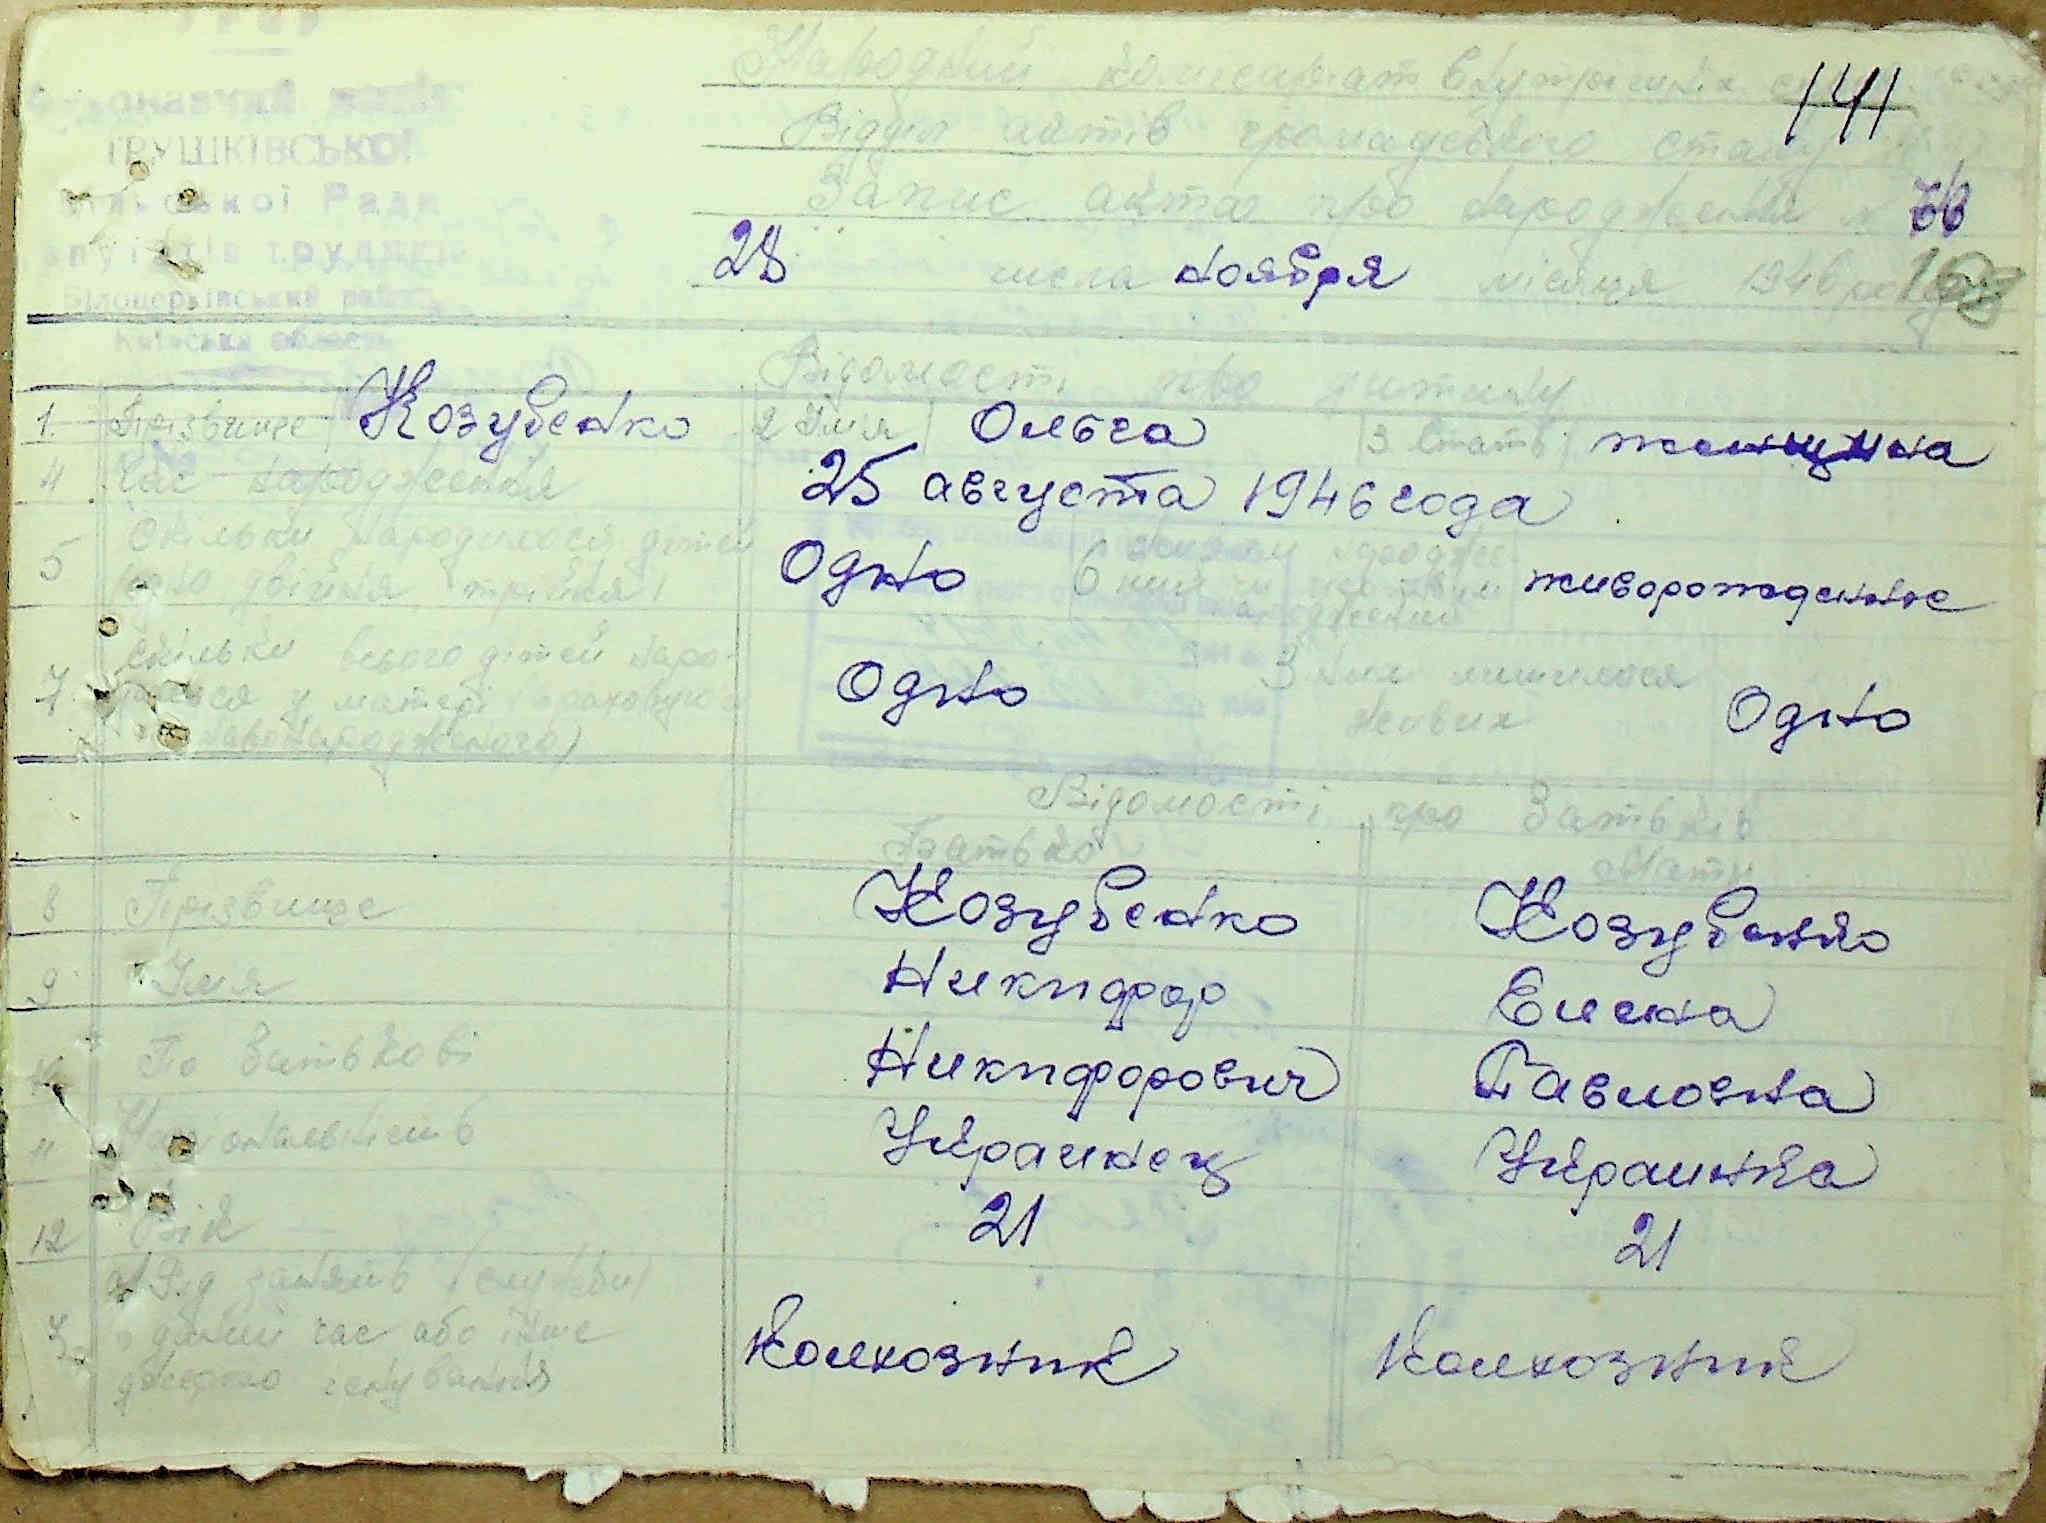 УРСР
Виконавчий комітет
ТРУШКІВСЬКОЇ
сільської Ради
депутатів трудящих
Білоцерківський район
Київська область
Народний комісаріат внутрішніх
141
Відділ актів громадського стану
Запис акта про народження №
28 числа ноября місяця 1946 року
Відомості про дитину
1. Прізвище Козубенко 2 Імя Ольга 3 Стать женщина
4 Час народження 25 августа 1946 года
5 Скільки народилося дітей
двійня, трійня) Одно 6 живонароджений чи мертвонароджений живорожденное
7 Скільки всього дітей народилося у матері (враховуючи новонародженого) Одно З них лишилося живих Одно
Відомості про батьків
Батько Мати
8 Прізвище Козубенко Козубенко
9 Імя Никифор Елена
10 По батькові Никифорович Павловна
11 Національність Украинец Украинка
12 Вік 21 21
а) Рід занять (служби)
в даний час або інше
джерело існування Колхозник Колхозник